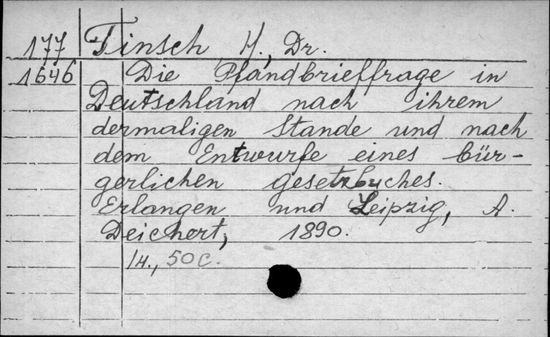 177 Finsch, H., Dr.
1646 Die Pfandbrieffrage in
Deutschland nach ihrem
dermaligen Stande und nach
dem Entwurfe eines bür-
gerlichen gesetzbuches.
Erlangen und Leipzig, A.
Deichert, 1890.
1H., 50c.